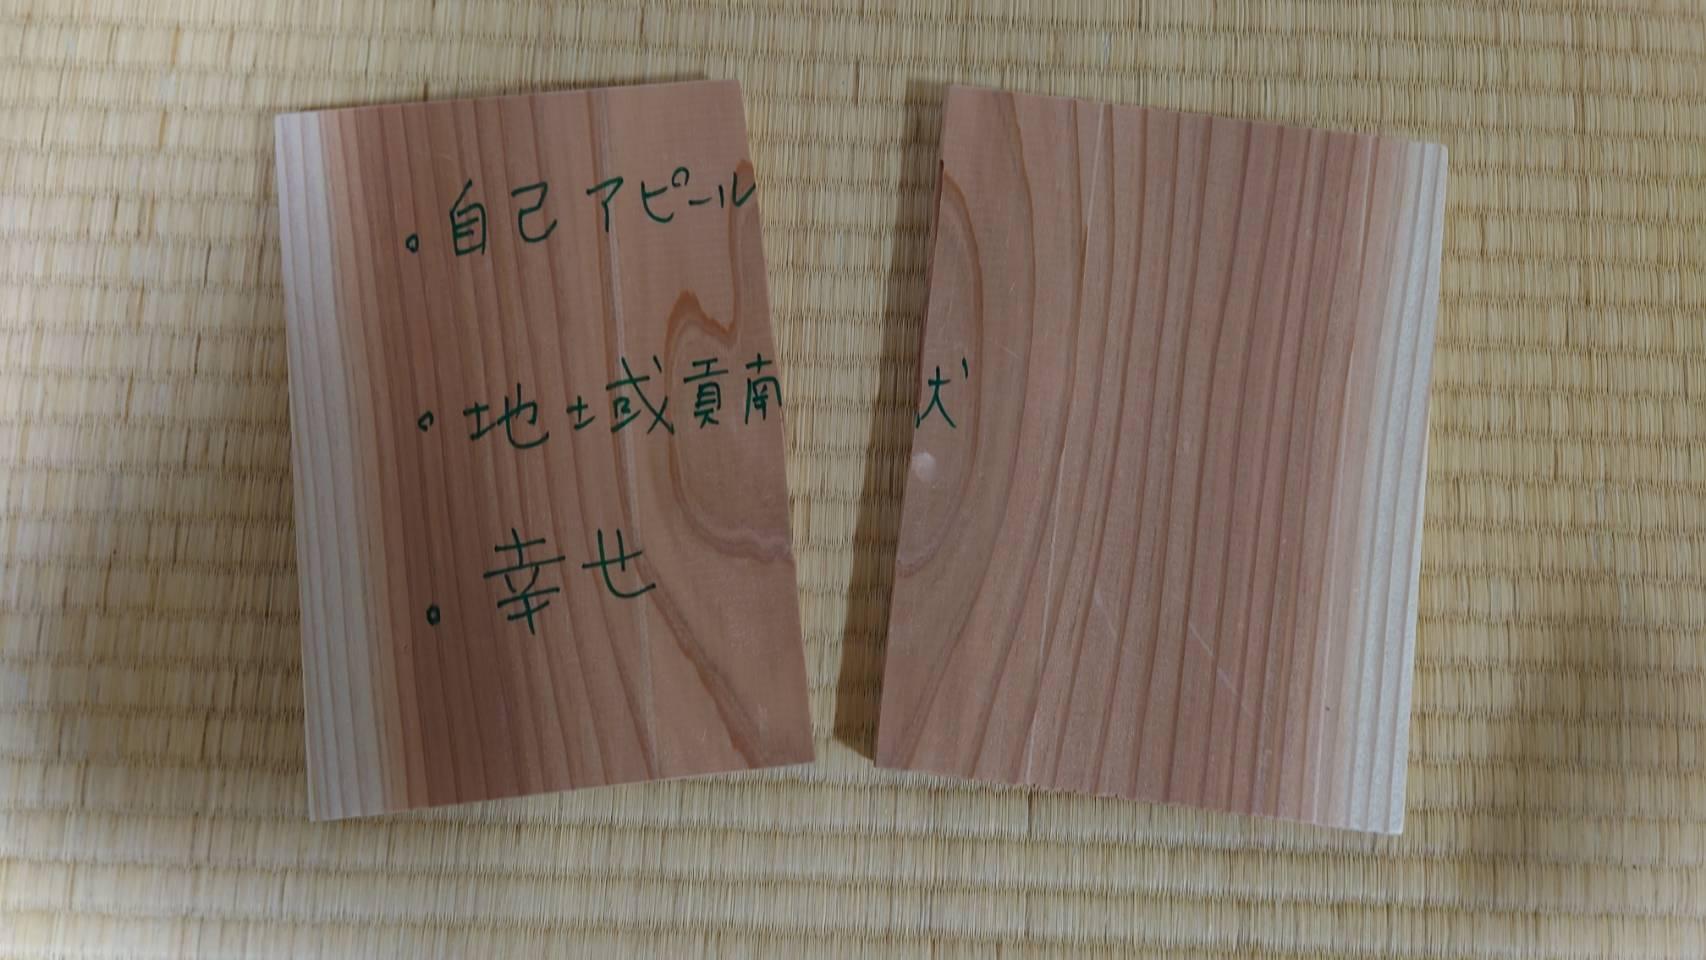 ・自己アピール
・地域貢献
・幸せ